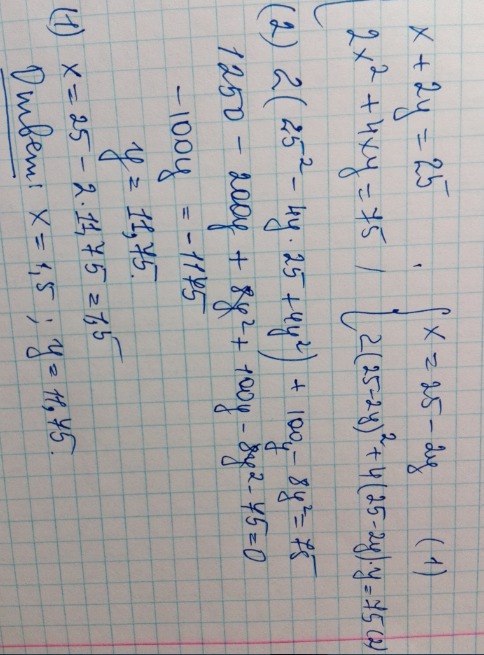 x + 2y = 25 . { x = 25 - 2y (1)
{ 2x² + 4xy = 75 / { 2(25-2y)² + 4(25-2y)·y = 75 (2)
(2) 2(25² - 4y·25 + 4y²) + 100y - 8y² = 75
1250 - 200y + 8y² + 100y - 8y² - 75 = 0
-100y = -1175
y = 11,75.
(1) x = 25 - 2·11,75 = 1,5
Ответ: x = 1,5 ; y = 11,75.